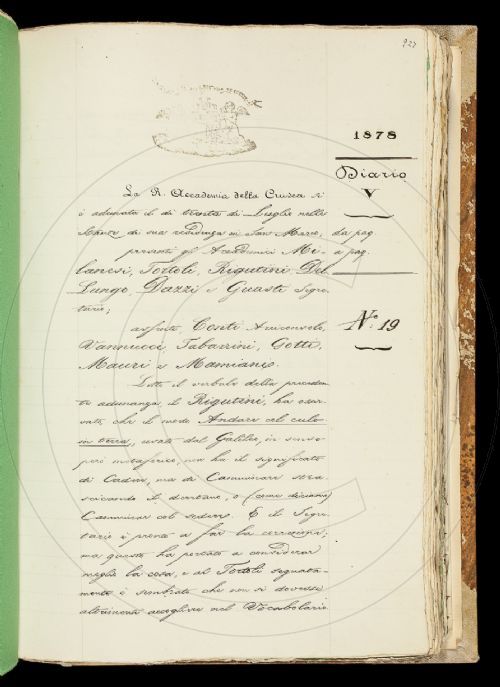 927
1878
Diario
V
La R. Accademia della Crusca si
è adunata il dì trenta di Luglio nelle
Stanze di sua residenza in San Marco,
da pag
presenti gli Accademici Mi-
a pag.
lanesi, Tortoli, Rigutini, Del
Lungo, Dazzi e Guasti Segre-
tario;
N.º 19
assente Conti Arciconsolo,
Vannucci, Tabarrini, Gotti,
Mauri e Mamiani.
Letto il verbale della preceden-
te adunanza il Rigutini, ha osser-
vato, che il modo Andare col culo
in terra, usato dal Galileo, in senso
però metaforico, non ha il significato
di Cadere, ma di Camminare stra-
scicando il deretano, o (come diciamo)
Camminar col sedere. E il Segre-
tario è pronto a far la correzione;
ma questo ha portato a considerar
meglio la cosa, e al Tortoli segnata-
mente è sembrato che non si dovesse
altrimenti accogliere nel Vocabolario